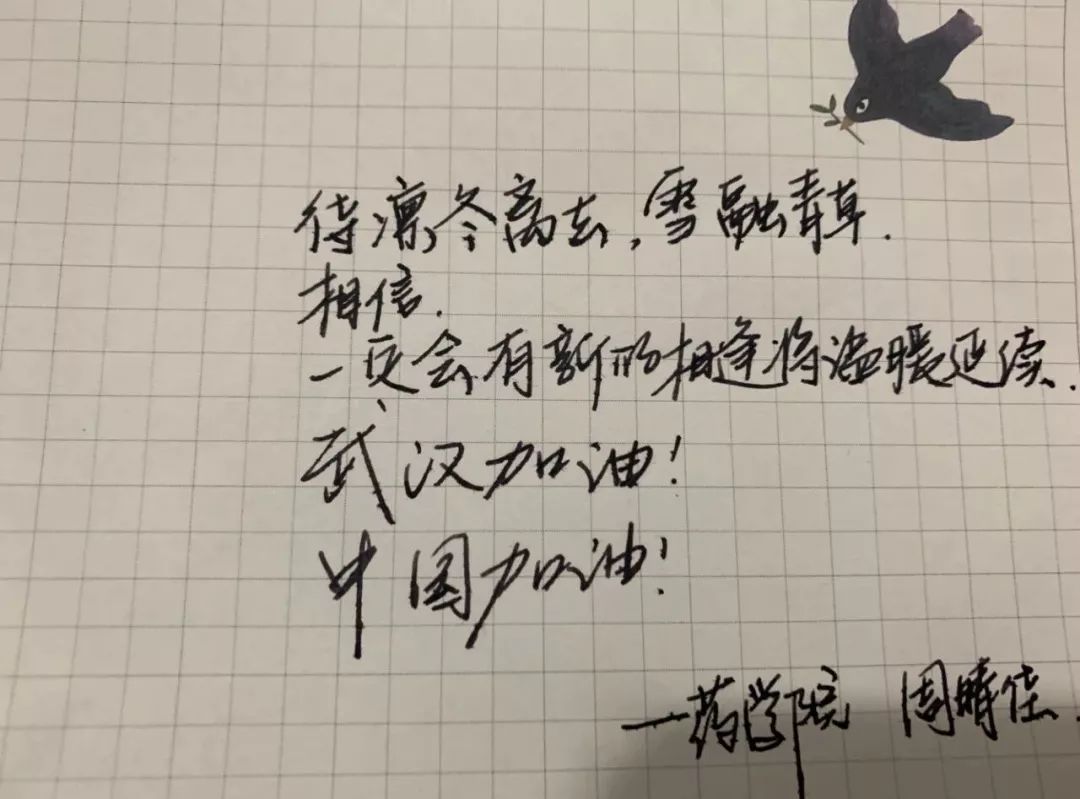 待凛冬离去,雪融青草.
相信.
一定会有新的相逢将温暖延续.
武汉加油!
中国加油!
—药学院 周晴佳